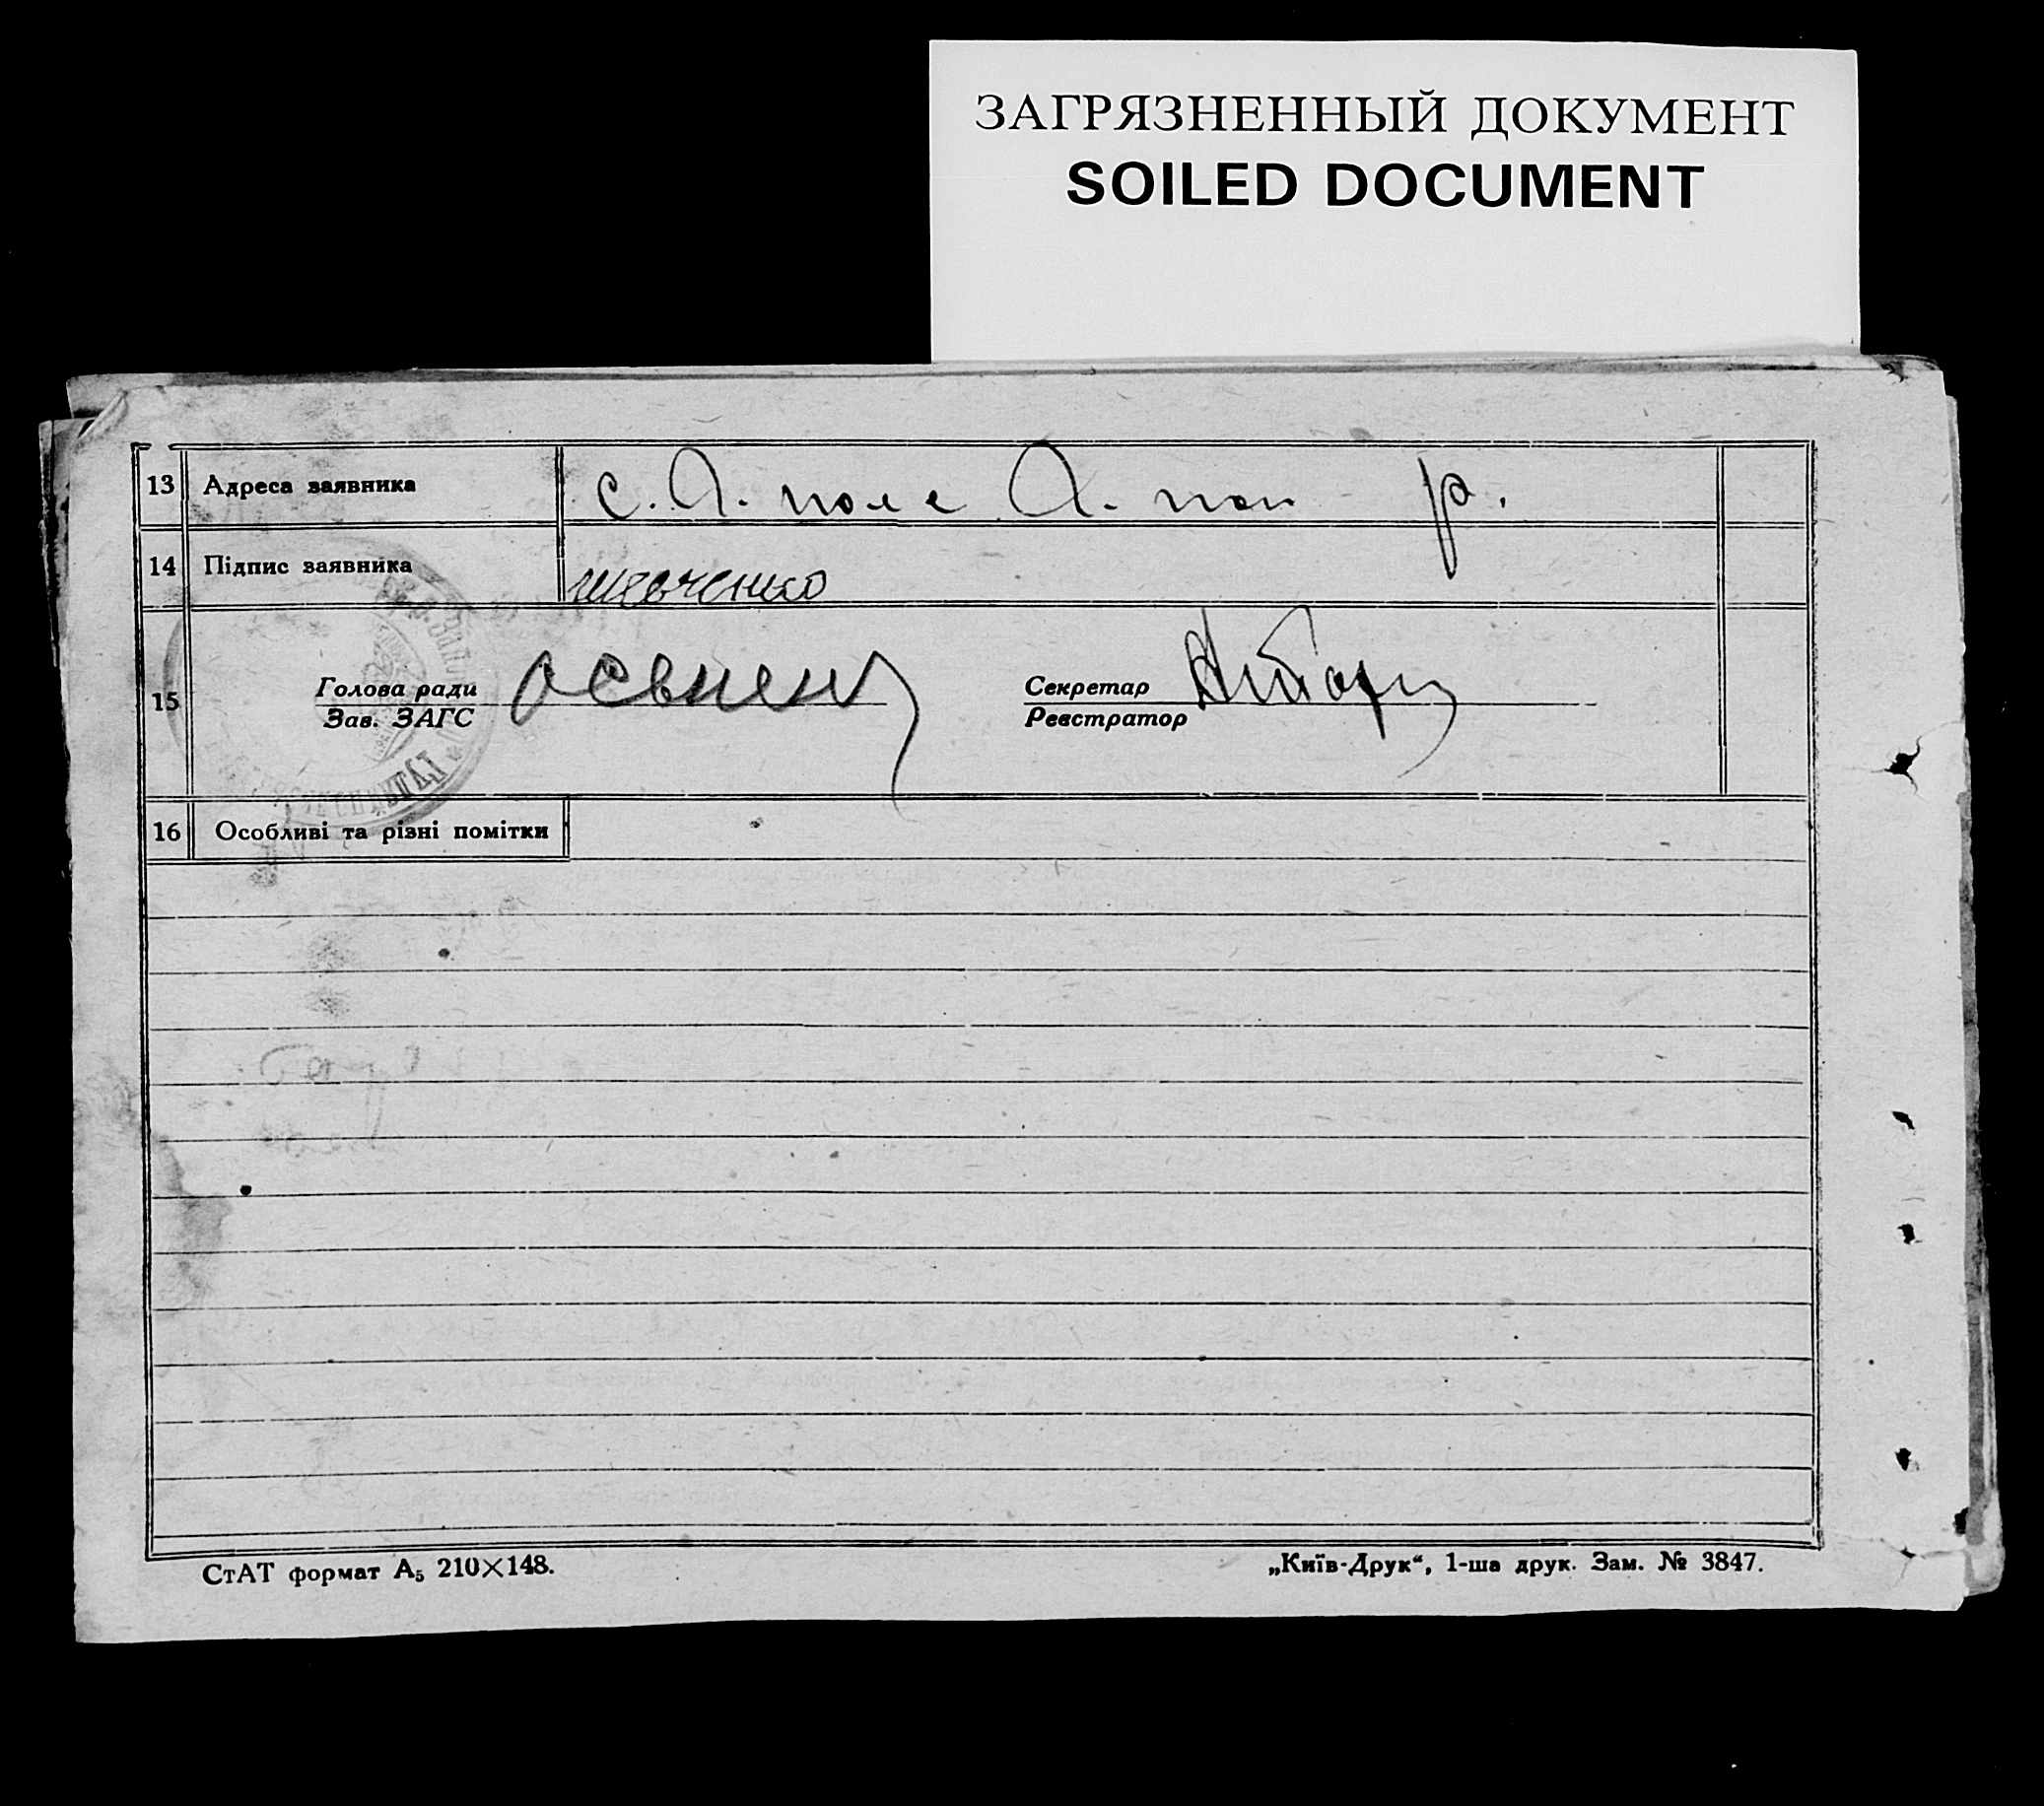 ЗАГРЯЗНЕННЫЙ ДОКУМЕНТ
SOILED DOCUMENT
13 Адреса заявника с. А. поле А. пол р.
14 Підпис заявника шевченко
15 Голова ради
Зав. ЗАГС
Секретар
Реєстратор
16 Особливі та різні помітки
СтАТ формат А₅ 210×148.
„Київ-Друк“, 1-ша друк. Зам. № 3847.